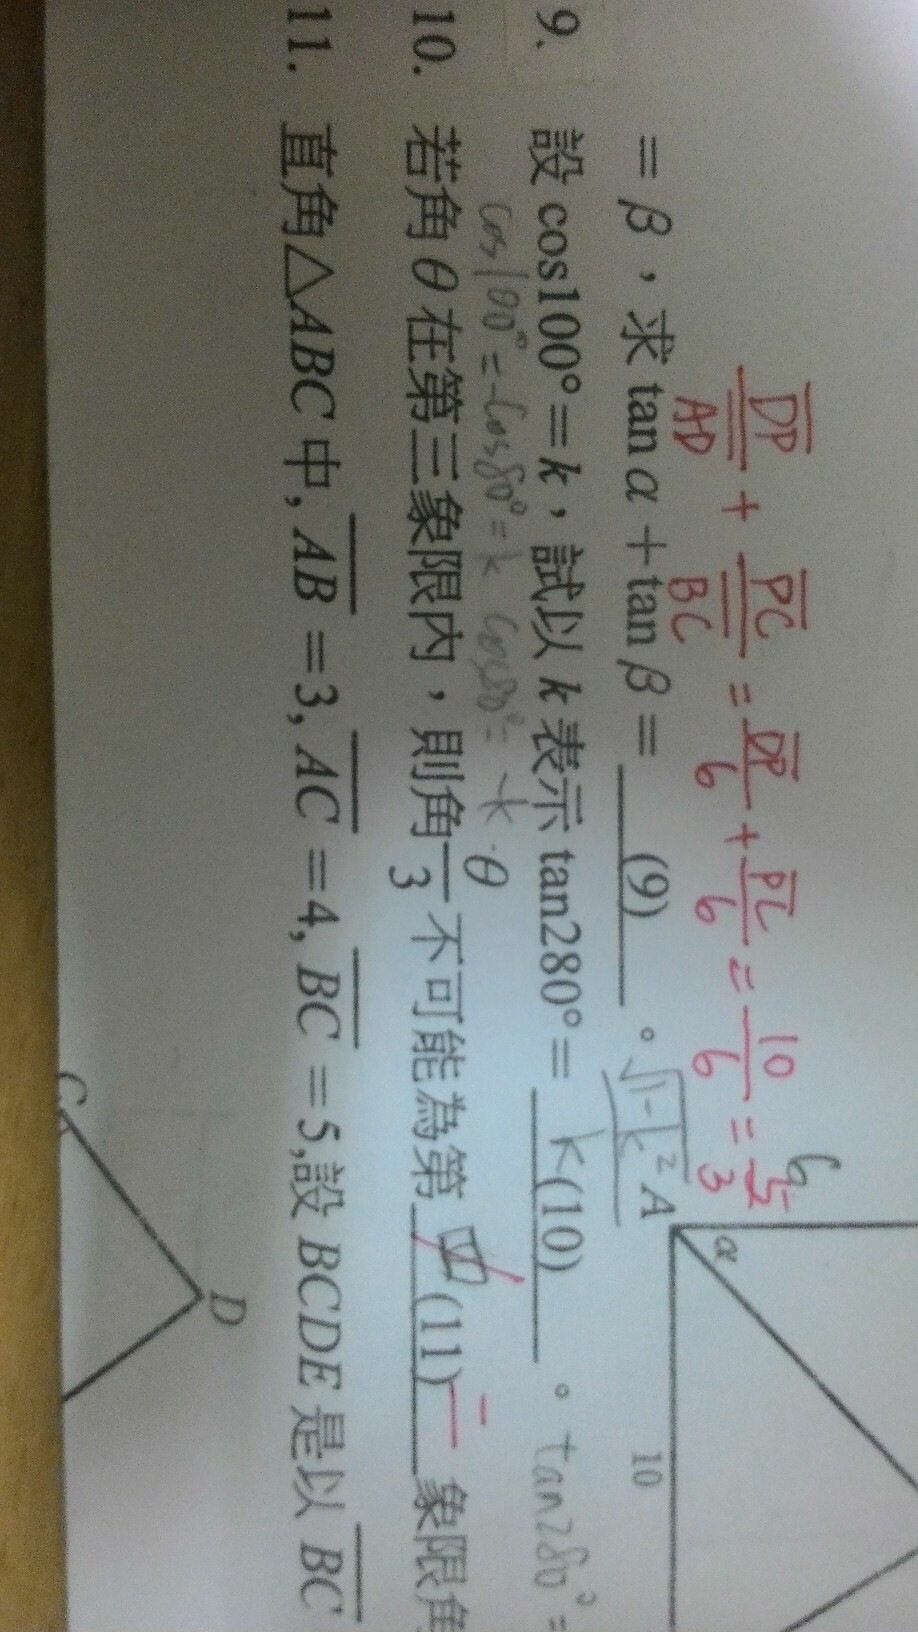 DP/AD + PC/BC = DP/6 + PC/6 = 10/6 = 5/3
6
α
= β，求 tan α + tan β = (9) 。
A
10
√1-k²
9. 設 cos100°=k，試以 k 表示 tan280°= k (10) 。 tan280°=
cos100°=-cos80°=k cos80°=-k
10. 若角 θ 在第三象限內，則角 θ/3 不可能為第 四 (11) 二 象限角
11. 直角△ABC 中, AB =3, AC =4, BC =5,設 BCDE 是以 BC
C
D